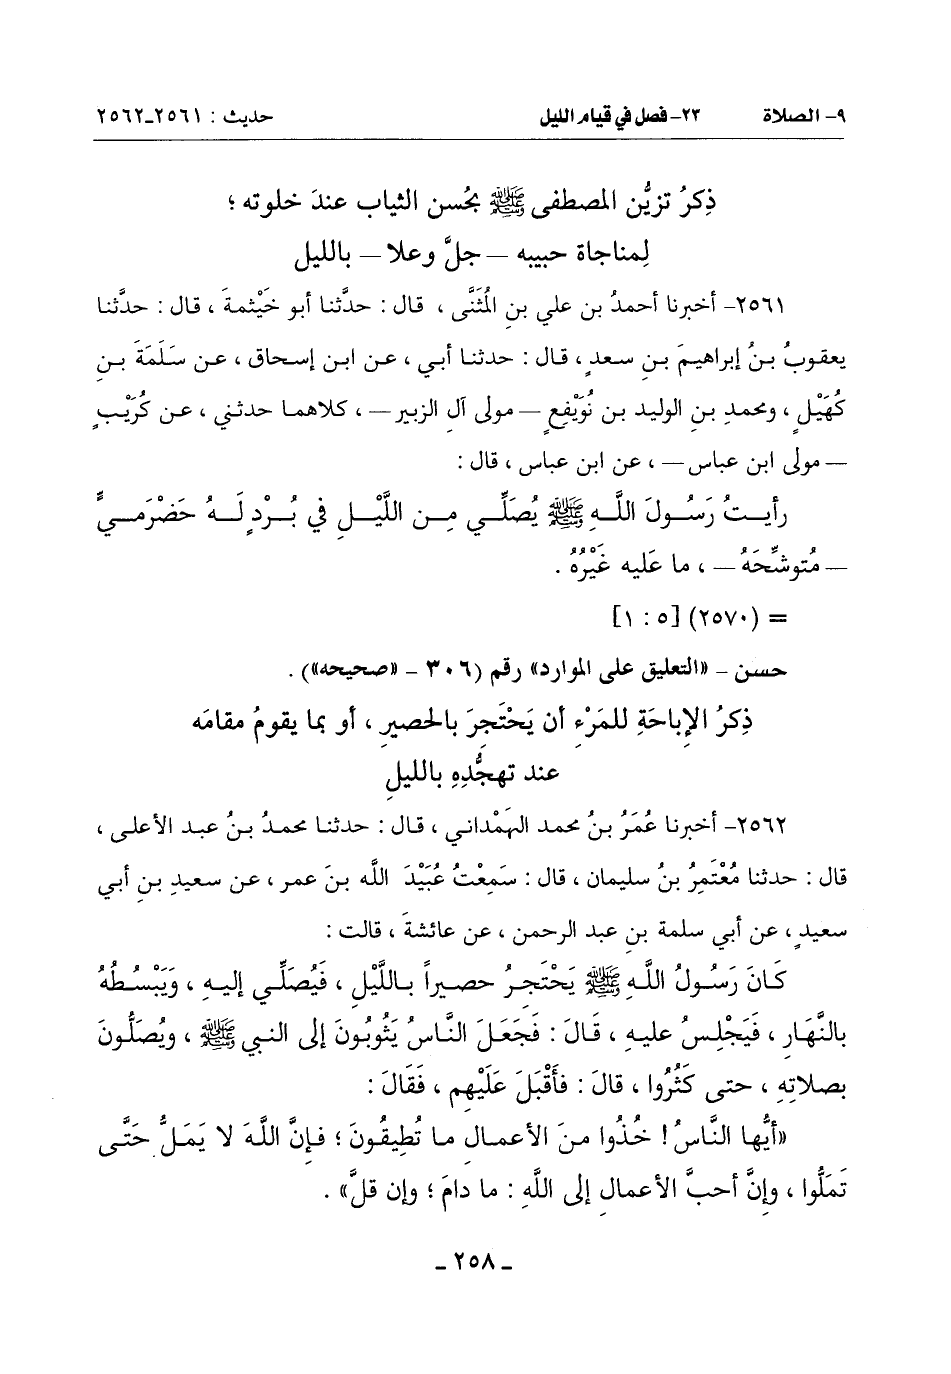 ٩- الصلاة ٢٣- فصل في قيام الليل حديث : ٢٥٦١-٢٥٦٢
ذِكرُ تزيُّن المصطفى ﷺ بحُسن الثياب عندَ خلوته ؛
لِمناجاة حبيبه — جلَّ وعلا — بالليل
٢٥٦١- أخبرنا أحمدُ بن علي بنِ المُثَنَّى ، قال : حدَّثنا أبو خَيْثمةَ ، قال : حدَّثنا
يعقوبُ بنُ إبراهيمَ بنِ سعدٍ ، قال : حدثنا أبي ، عن ابن إسحاق ، عن سَلَمَةَ بنِ
كُهَيْلٍ ، ومحمدِ بنِ الوليد بن نُوَيْفِعٍ — مولى آلِ الزبير — ، كلاهما حدثني ، عن كُرَيْبٍ
— مولى ابن عباس — ، عن ابن عباس ، قال :
رأيتُ رَسُولَ اللَّهِ ﷺ يُصَلِّي مِن اللَّيْلِ في بُرْدٍ لَهُ حَضْرَميٍّ
— مُتوشِّحَهُ — ، ما عَليه غَيْرُهُ .
= (٢٥٧٠) [٥ : ١]
حسن - «التعليق على الموارد» رقم (٣٠٦ - «صحيحه») .
ذِكرُ الإباحَةِ للمَرْءِ أن يَحْتَجِرَ بالحصيرِ ، أو بما يقومُ مقامَه
عند تهجُّدِهِ بالليلِ
٢٥٦٢- أخبرنا عُمَرُ بنُ محمد الهَمْداني ، قال : حدثنا محمدُ بنُ عبد الأعلى ،
قال : حدثنا مُعْتَمِرُ بنُ سليمان ، قال : سَمِعْتُ عُبَيْدَ الله بنَ عمر ، عن سعيدِ بنِ أبي
سعيدٍ ، عن أبي سلمة بنِ عبد الرحمن ، عن عائشةَ ، قالت :
كَانَ رَسُولُ اللَّهِ ﷺ يَحْتَجِرُ حصيراً بـاللَّيْلِ ، فَيُصَلِّي إليهِ ، وَيَبْسُطُهُ
بالنَّهَارِ ، فَيَجْلِسُ عليهِ ، قَالَ : فَجَعَلَ النَّاسُ يَثُوبُونَ إلى النبي ﷺ ، ويُصَلُّونَ
بصلاتِهِ ، حتى كَثُرُوا ، قالَ : فأَقْبَلَ عَلَيْهِم ، فَقَالَ :
«أيُّها النَّاسُ ! خُذُوا منَ الأعمال ما تُطِيقُونَ ؛ فإنَّ اللَّهَ لا يَمَلُّ حَتَّى
تَمَلُّوا ، وإنَّ أحبَّ الأعمالِ إلى اللَّهِ : ما دامَ ؛ وإن قلَّ» .
- ٢٥٨ -